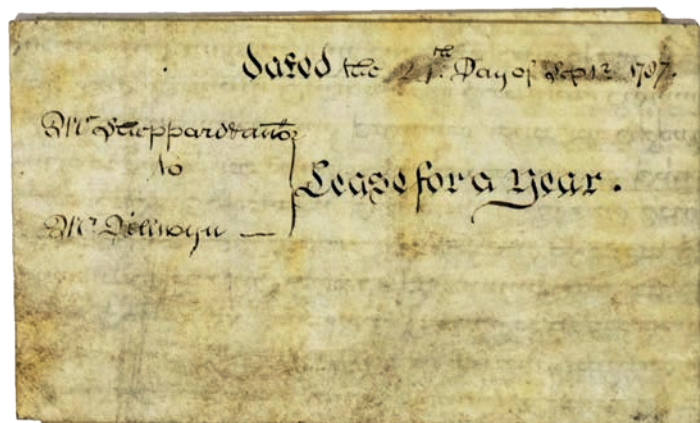 Dated the 24th Day of Sepr. 1787.
Mr. Sheppard & anor.
to
Mr. Dillwyn
Lease for a Year.